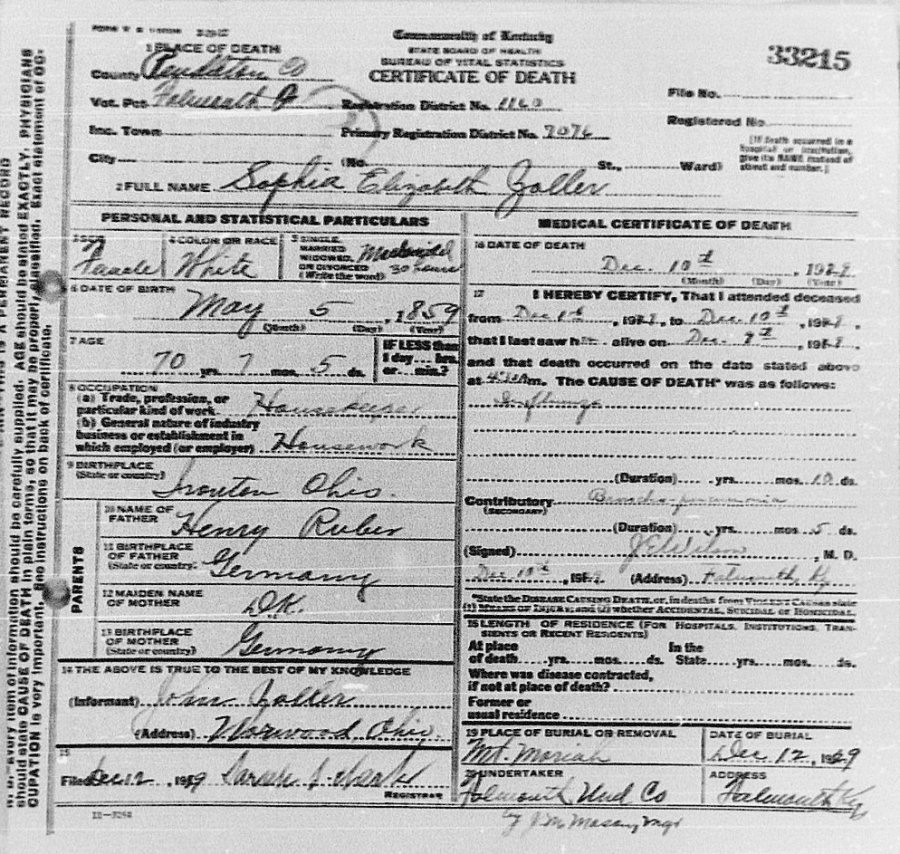 Commonwealth of Kentucky
STATE BOARD OF HEALTH
BUREAU OF VITAL STATISTICS
CERTIFICATE OF DEATH
33215
1 PLACE OF DEATH
County Pendleton Co
Vot. Pct. Falmouth
Registration District No. 1160
File No.
Inc. Town
Primary Registration District No. 7076
Registered No.
City (No. St., Ward)
[If death occurred in a hospital or institution, give its NAME instead of street and number.]
2 FULL NAME Sophia Elizabeth Zoller
PERSONAL AND STATISTICAL PARTICULARS
3 SEX
Female
4 COLOR OR RACE
White
5 SINGLE, MARRIED, WIDOWED, OR DIVORCED (Write the word)
6 DATE OF BIRTH
May 5, 1859
(Month) (Day) (Year)
7 AGE
70 yrs. 7 mos. 5 ds.
IF LESS than 1 day.... hrs. or.... min.?
8 OCCUPATION
(a) Trade, profession, or particular kind of work. Housekeeper
(b) General nature of industry business or establishment in which employed (or employer) Housework
9 BIRTHPLACE (State or country)
Ironton Ohio.
PARENTS
10 NAME OF FATHER Henry Ruber
11 BIRTHPLACE OF FATHER (State or country) Germany
12 MAIDEN NAME OF MOTHER D.K.
13 BIRTHPLACE OF MOTHER (State or country) Germany
14 THE ABOVE IS TRUE TO THE BEST OF MY KNOWLEDGE
(Informant) John Zoller
(Address) Norwood, Ohio.
15
Filed Dec 12, 1929
REGISTRAR
MEDICAL CERTIFICATE OF DEATH
16 DATE OF DEATH
Dec. 10th, 1929
(Month) (Day) (Year)
17 I HEREBY CERTIFY, That I attended deceased
from Dec 1st, 1929, to Dec. 10th, 1929,
that I last saw h alive on Dec. 9th, 1929,
and that death occurred on the date stated above
at m. The CAUSE OF DEATH* was as follows:
Influenza
(Duration) yrs. mos. 10 ds.
Contributory (SECONDARY) Broncho-pneumonia
(Duration) yrs. mos. 5 ds.
(Signed) J E Wilson, M. D.
Dec 10th, 1929 (Address) Falmouth, Ky
*State the DISEASE CAUSING DEATH, or, in deaths from VIOLENT CAUSES state
(1) MEANS OF INJURY; and (2) whether ACCIDENTAL, SUICIDAL or HOMICIDAL.
18 LENGTH OF RESIDENCE (FOR HOSPITALS, INSTITUTIONS, TRANSIENTS OR RECENT RESIDENTS)
At place of death.....yrs.....mos.....ds. In the State.....yrs.....mos.....ds.
Where was disease contracted, if not at place of death?
Former or usual residence
19 PLACE OF BURIAL OR REMOVAL
Mt. Moriah
DATE OF BURIAL
Dec 12, 1929
20 UNDERTAKER
Falmouth Und Co
ADDRESS
Falmouth Ky